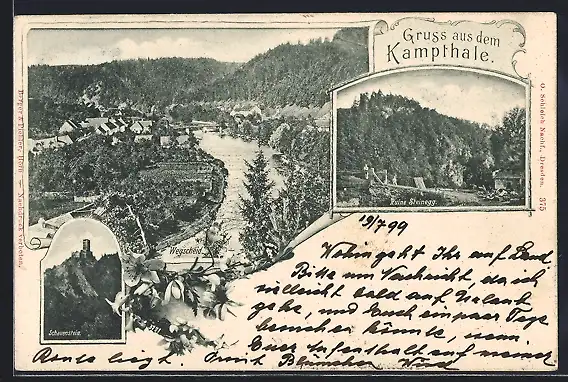 Gruss aus dem
Kampthale.
Berger & Fischer, Horn — Nachdruck verboten.
O. Schleich Nachf., Dresden. 375
Ruine Steinegg.
Wegscheid.
Schauenstein.
19/7 99
Wohin geht Ihr auf Land
Bitte um Nachricht, da ich
vielleicht bald auf Urlaub
gehe, und Euch ein paar Tage
besuchen könnte, wenn
Euer Aufenthalt auf meiner
Route liegt.